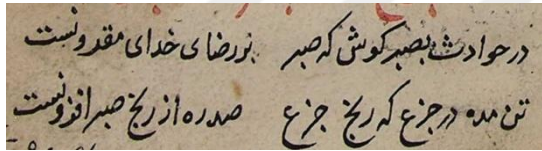 در حوادث بصبر کوش که صبر برضای خدای مقرونست
تن مده در جزع که رنج جزع صدره از رنج صبر افزونست